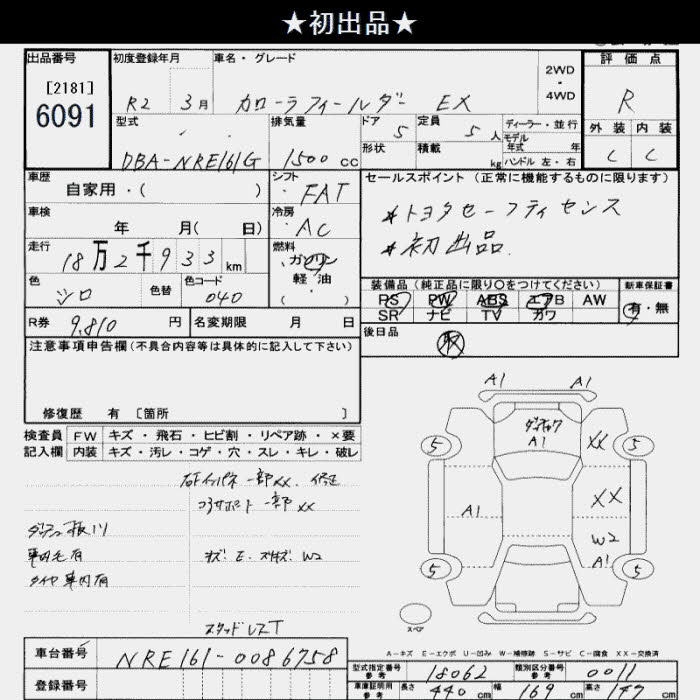 ★初出品★
出品番号 初度登録年月 車名・グレード 2WD・4WD 評価点
[2181]
6091
R2 3月 カローラフィールダー EX R
型式 排気量 ドア 定員 ディーラー・並行 外装 内装
DBA-NRE161G 1500cc 5 5人 モデル年式 年 C C
形状 積載 kg ハンドル 左・右
車歴 シフト セールスポイント (正常に機能するものに限ります)
自家用・( ) FAT
車検 冷房 *トヨタセーフティセンス
年 月( 日) AC *初出品.
走行 燃料
18万2千933km ガソリン
軽油
色 色替 色コード ( )
シロ 040
装備品 (純正品に限り○をつけてください) 新車保証書
PS PW ABS エアB AW 有・無
SR ナビ TV カワ
R券 9,810円 名変期限 月 日
後日品 取
注意事項申告欄(不具合内容等は具体的に記入して下さい)
修復歴 有 [箇所 ]
検査員 FW キズ・飛石・ヒビ割・リペア跡・×要
記入欄 内装 キズ・汚レ・コゲ・穴・スレ・キレ・破レ
右インパネ一部XX. 修正
コアサポート一部XX
車内毛有
タイヤ車内有
A1 A1
A1
5 XX 5
A1 XX
W2
5 A1 5
スペア
A-キズ E-エクボ U-凹み W-補修跡 S-サビ C-腐食 XX-交換済
車台番号 NRE161-0086758
登録番号
型式指定番号 参考 18062 類別区分番号 参考 0011
車庫証明用 参考 長さ 440cm 幅 169cm 高さ 147cm